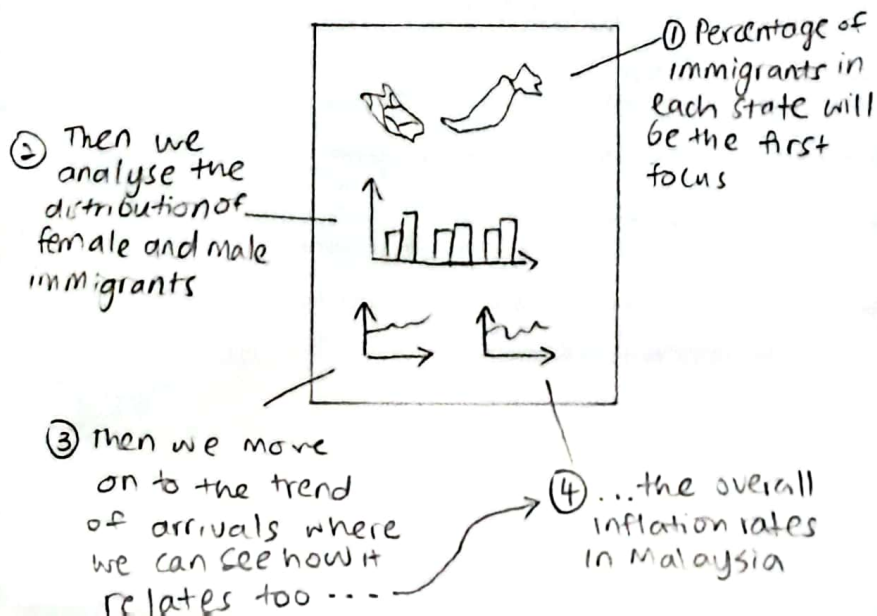 ① Percentage of
immigrants in
each state will
be the first
focus
② Then we
analyse the
distribution of
female and male
immigrants
③ Then we move
on to the trend
of arrivals where
we can see how it
relates too ....
④ ...the overall
inflation rates
in Malaysia